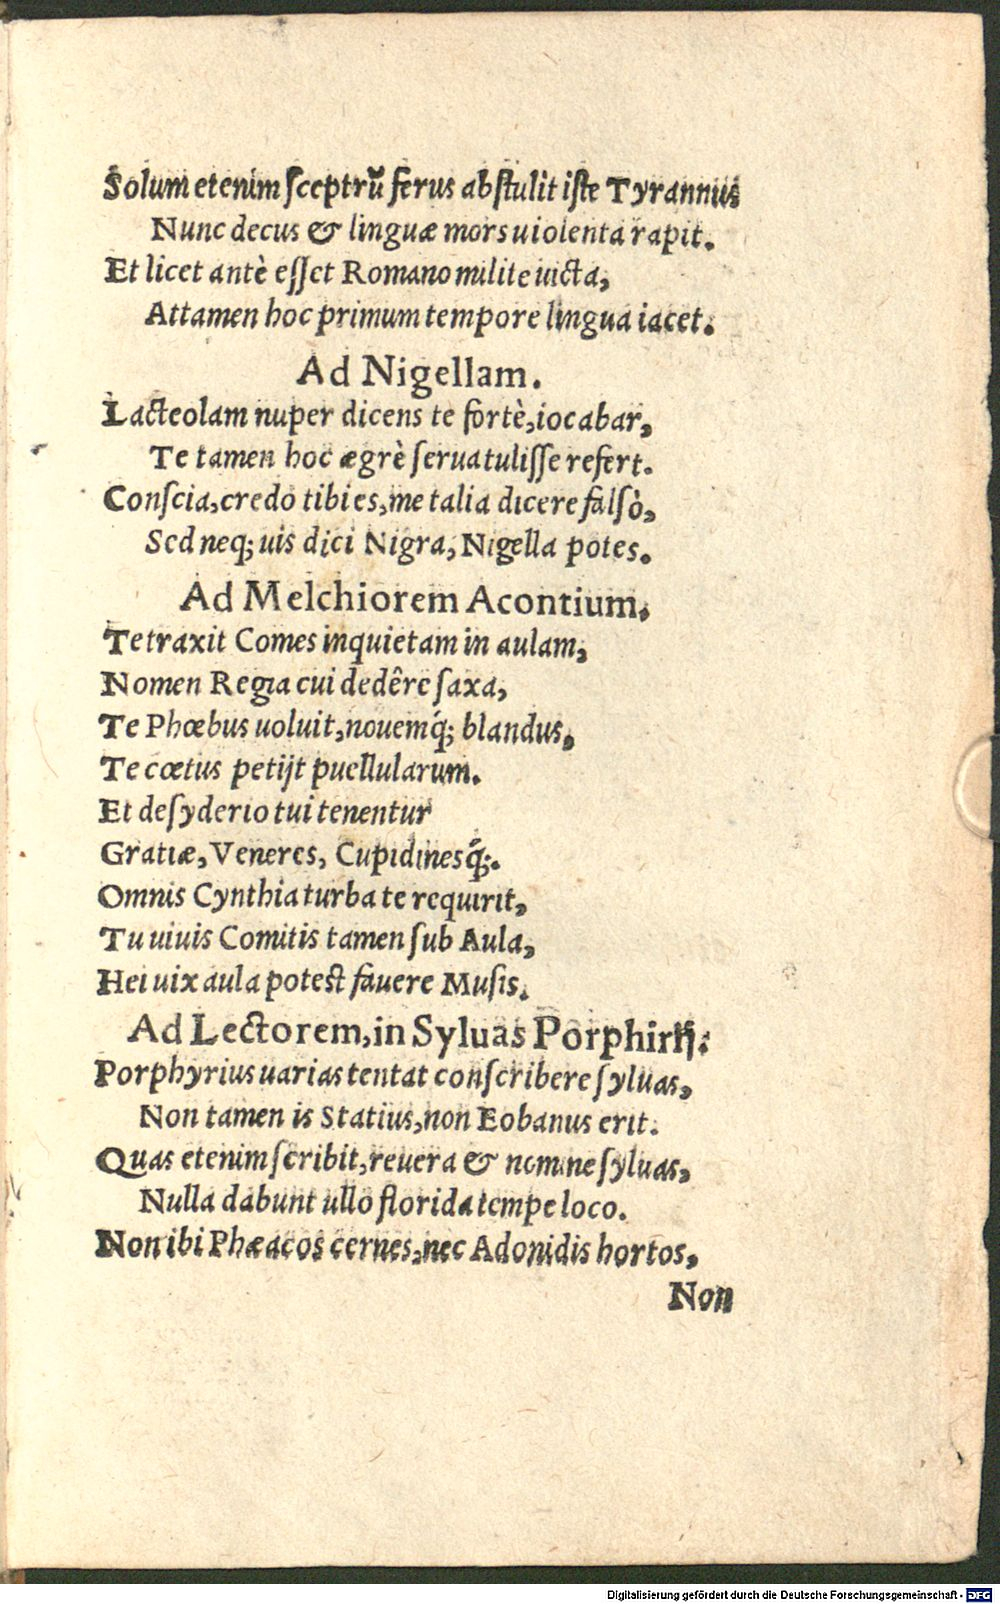 Solum etenim sceptrũ ferus abstulit iste Tyrannus
Nunc decus & linguæ mors uiolenta rapit.
Et licet antè esset Romano milite uicta,
Attamen hoc primum tempore lingua iacet.
Ad Nigellam.
Lacteolam nuper dicens te fortè, iocabar,
Te tamen hoc ægrè serua tulisse refert.
Conscia, credo tibi es, me talia dicere falsò,
Sed neq; uis dici Nigra, Nigella potes.
Ad Melchiorem Acontium.
Te traxit Comes inquietam in aulam,
Nomen Regia cui dedêre saxa,
Te Phœbus uoluit, nouemq́; blandus,
Te cœtus petijt puellularum.
Et desyderio tui tenentur
Gratiæ, Veneres, Cupidinesq́;.
Omnis Cynthia turba te requirit,
Tu uiuis Comitis tamen sub Aula,
Hei uix aula potest fauere Musis.
Ad Lectorem, in Syluas Porphirij.
Porphyrius uarias tentat conscribere syluas,
Non tamen is Statius, non Eobanus erit.
Quas etenim scribit, reuera & nomine syluas,
Nulla dabunt ullo florida tempe loco.
Non ibi Phæacos cernes, nec Adonidis hortos,
Non
Digitalisierung gefördert durch die Deutsche Forschungsgemeinschaft - DFG